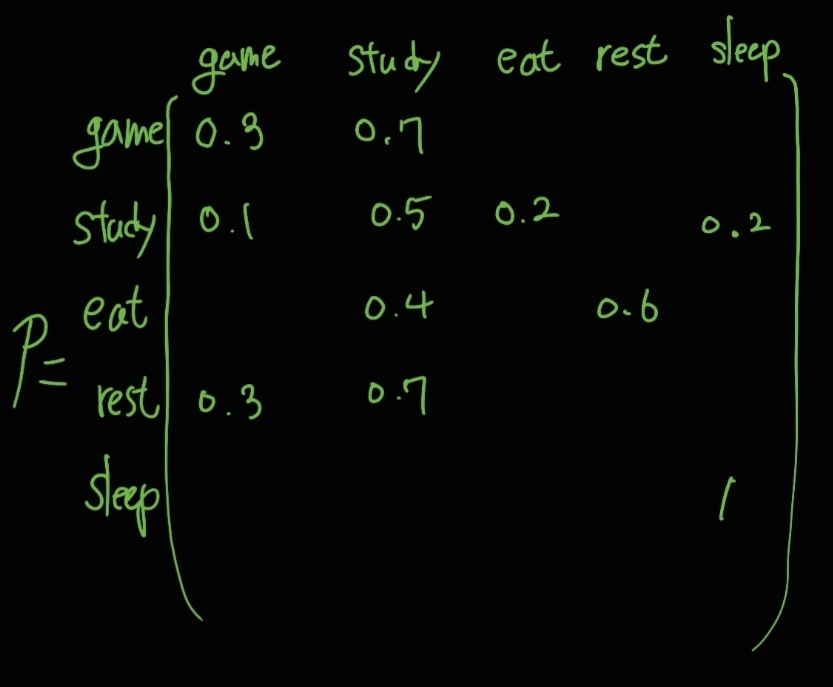 game study eat rest sleep
game 0.3 0.7
study 0.1 0.5 0.2 0.2
eat 0.4 0.6
P=
rest 0.3 0.7
sleep 1